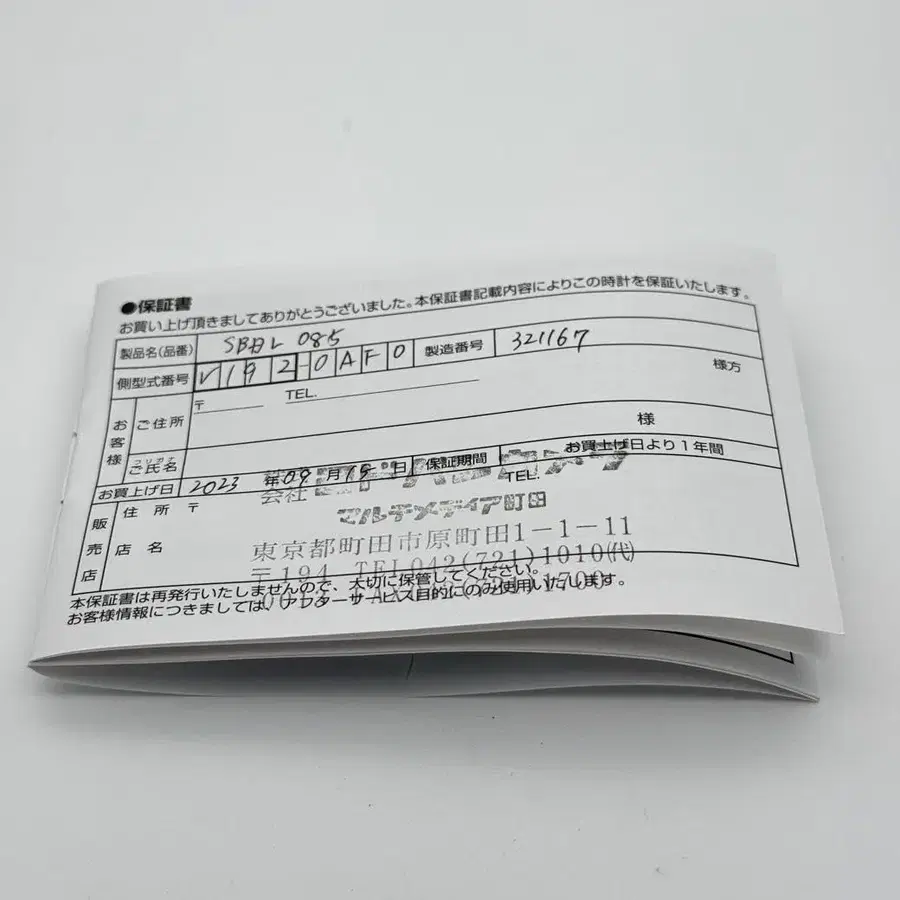 ●保証書
お買い上げ頂きましてありがとうございました。本保証書記載内容によりこの時計を保証いたします。
製品名(品番) SBDL 085
側型式番号 V192-0AF0 製造番号 321167
お客様 ご住所 〒 TEL. 様方
フリガナ
ご氏名 様
お買上げ日 2023年09月15日 保証期間 お買上げ日より1年間
販売店 住所 〒 TEL.
店名
会社ヨドバシカメラ
マルチメディア町田
東京都町田市原町田1-1-11
〒194 TEL042(721)1010(代)
本保証書は再発行いたしませんので、大切に保管してください。
お客様情報につきましては、アフターサービス目的にのみ使用いたします。